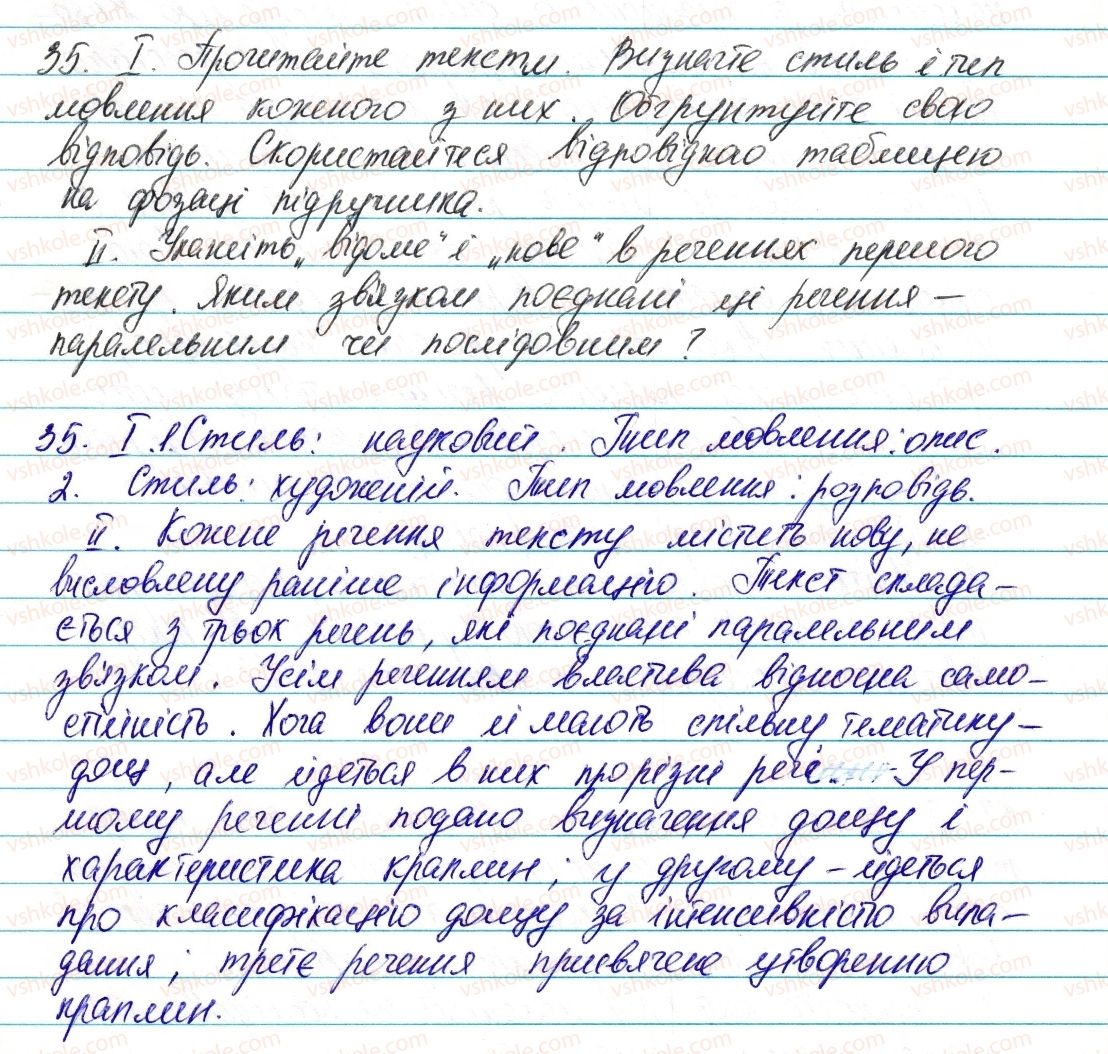 35. I. Прочитайте тексти. Визначте стиль і тип
мовлення кожного з них. Обґрунтуйте свою
відповідь. Скористайтеся відповідною таблицею
на форзаці підручника.
II. Укажіть „відоме" і „нове" в реченнях першого
тексту. Яким зв'язком поєднані ці речення –
паралельним чи послідовним?
35. I. 1. Стиль: науковий. Тип мовлення: опис.
2. Стиль: художній. Тип мовлення: розповідь.
II. Кожне речення тексту містить нову, не
висловлену раніше інформацію. Текст склада-
ється з трьох речень, які поєднані паралельним
зв'язком. Усім реченням властива відносна само-
стійність. Хоча вони й мають спільну тематику –
дощ, але йдеться в них про різні речі. У пер-
шому реченні подано визначення дощу і
характеристика краплин; у другому – йдеться
про класифікацію дощу за інтенсивністю випа-
дання; третє речення присвячене утворенню
краплин.
vshkole.com